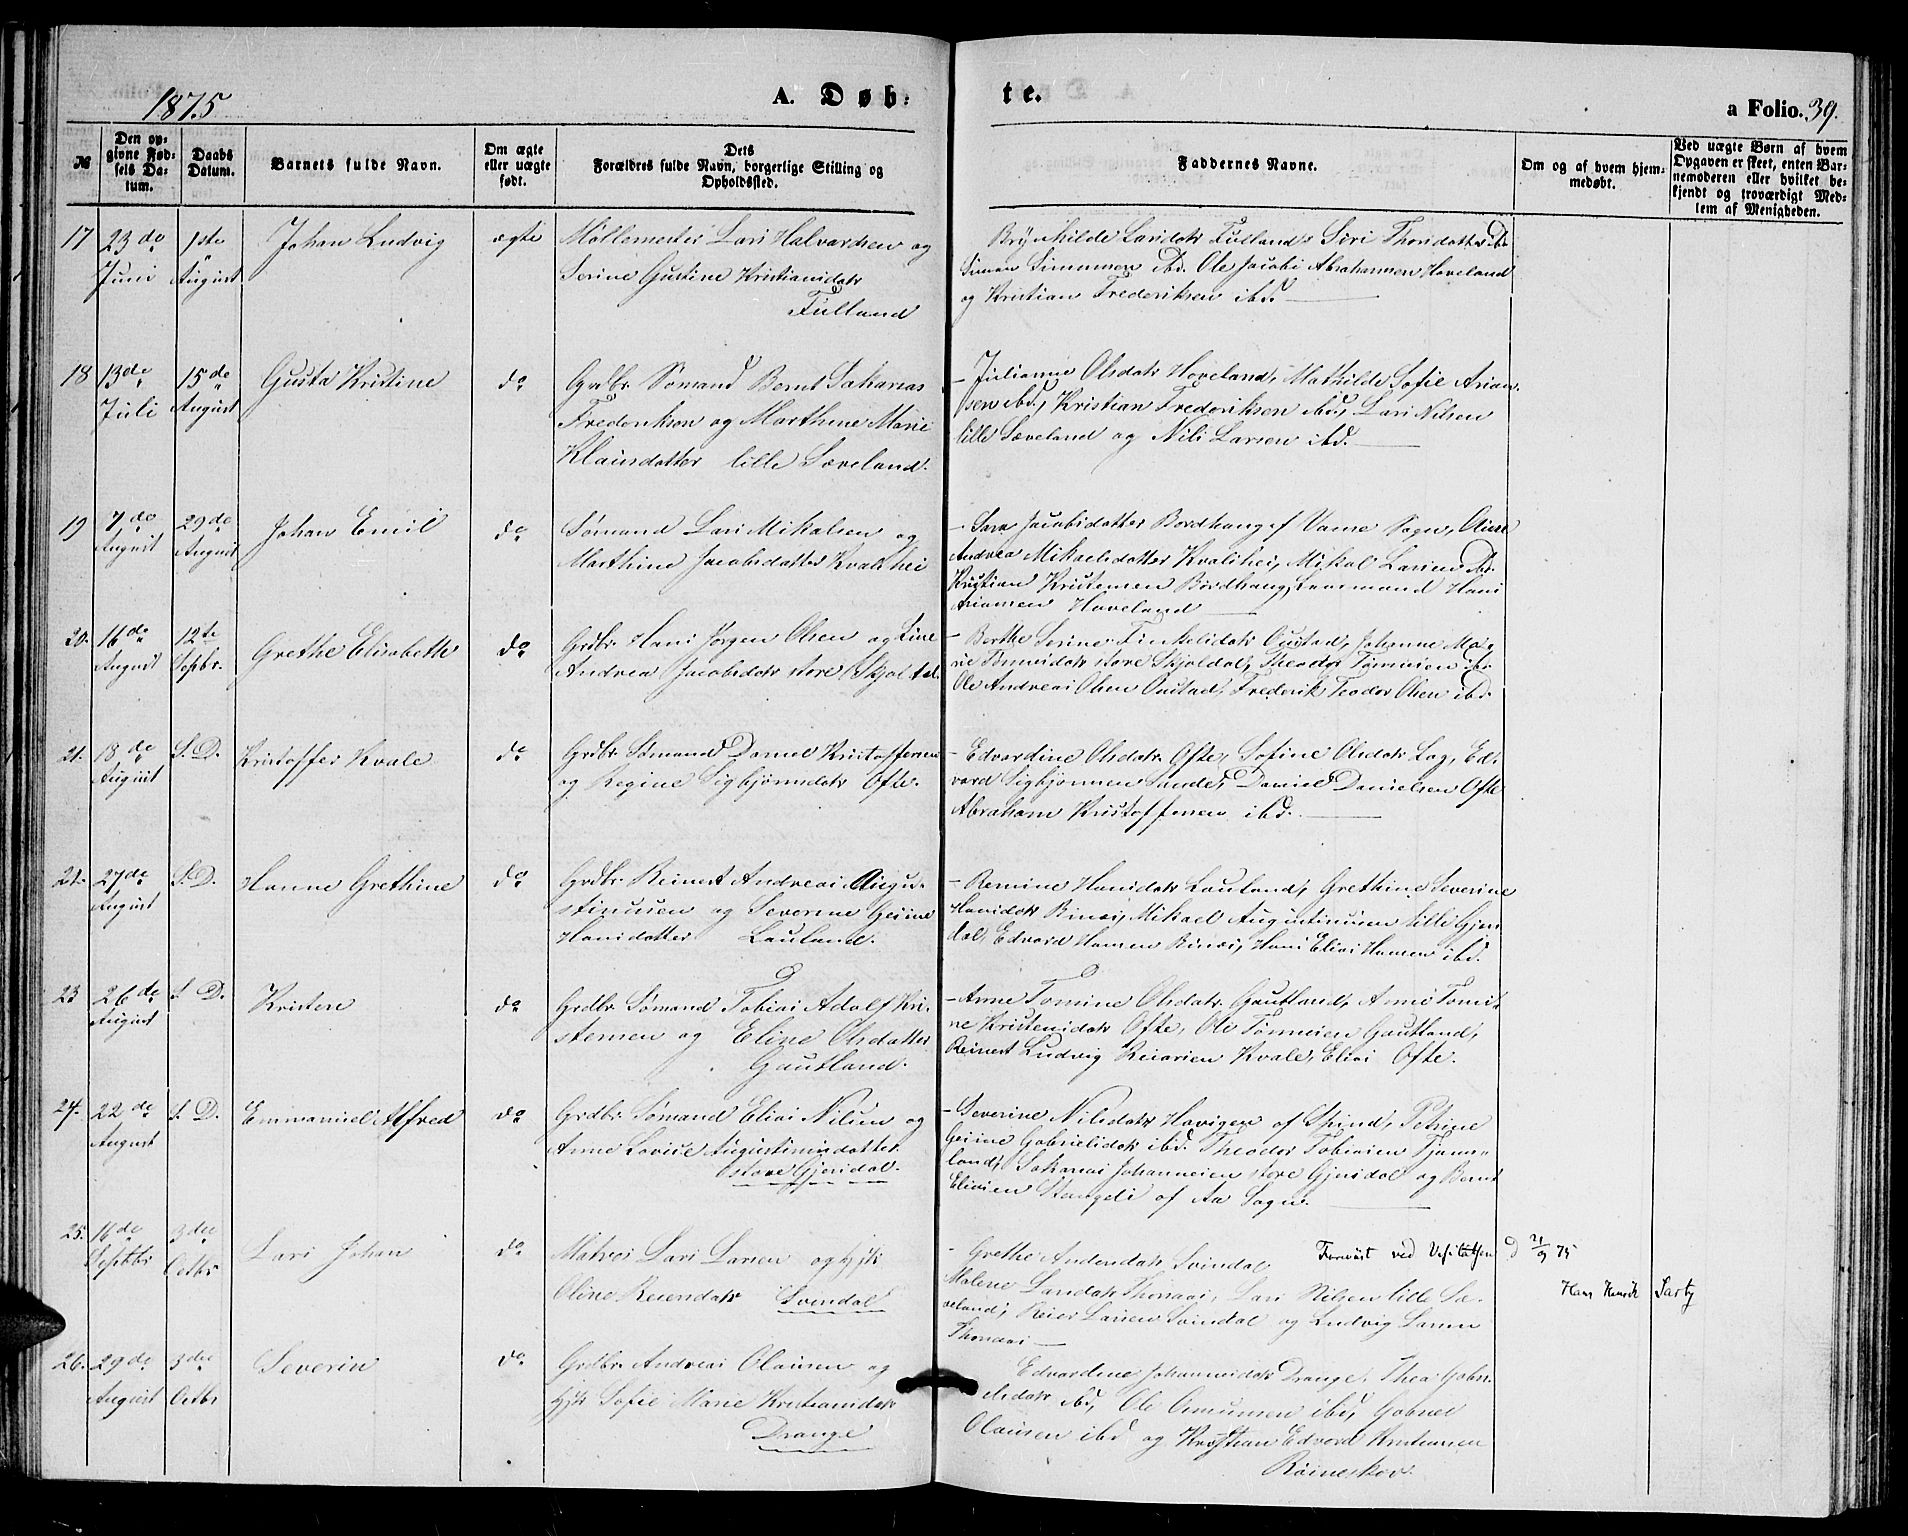 1875
A. Døb-
te.
a Folio. 39.
№
Den op-
givne Fød-
sels Da-
tum.
Daabs
Datum.
Barnets fulde Navn.
Om ægte
eller uægte
født.
Dets
Forældres fulde Navn, borgerlige Stilling og
Opholdssted.
Faddernes Navne.
Om og af hvem hjem-
medøbt.
Ved uægte Børn af hvem
Opgaven er skeet, enten Bar-
nemoderen eller hvilket be-
kjendt og troværdigt Med-
lem af Menigheden.
17 23de Juni
1ste August
Johan Ludvig
ægte
Møllemester Lars Halvardsen og
Serine Gustine Kristiansdatr
Fulland
Brynhilde Larsdatr Fulland, Siri Thorsdatter ibd.
Simon Simonsen ibd. Ole Jacobs Abrahamsen Hoveland
og Kristian Frederiksen ibd.
18 13de Juli
15de August
Gusta Kristine
do
Grdbr. Sømand Bernt Sakarias
Frederiksen og Marthine Marie
Klausdatter lille Sæveland.
Julianne Olsdatr Hoveland, Mathilde Sofie Arian-
sen ibd., Kristian Frederiksen ibd., Lars Nilsen
lille Sæveland og Nils Larsen ibd.
19 7de August
29de August
Johan Emil
do
Sømand Lars Mikalsen og
Marthine Jacobsdatter Kvalshei
Sara Jacobsdatter Bordhaug af Vanse Sogn,
Andrea Mikaelsdatter Kvalshei, Mikal Larsen ibd.
Kristian Kristensen Bordhaug, Hans
Ariansen Hoveland
20. 16de August
12te Septbr.
Grethe Elisabeth
do
Grdbr. Hans Jørgen Olsen og Line
Andrea Jacobsdatr store Skjoldal.
Berthe Serine Oustad, Johanne Ma-
rie Tønnesdatr store Skjoldal, Theodor Tønnesen ibd.
Ole Andreas Olsen Oustad, Frederik Teodor Olsen ibd.
21. 18de August
S. D.
Kristoffer Kvale
do
Grdbr. Sømand Daniel Kristoffersen
og Regine Sigbjørnsdatr Ofte.
Edvardine Olsdatr Ofte, Sofine Olsdatr Log, Ed-
vard Sigbjørnsen Sande, Daniel Danielsen Ofte
Abraham Kristoffersen ibd.
22. 27de August
S. D.
Hanne Grethine
do
Grdbr. Reinert Andreas Augu-
stinusen og Severine Gesine
Hansdatter Lauland.
Hansdatr Lauland, Grethine Severine
Hansdatr Mikael Augustinusen lille Gjers-
dal, Edvard Hansen Hans Elias Hansen ibd.
23 26de August
S. D.
Kristen
do
Grdbr. Sømand Tobias Adolf Kri-
stensen og Eline Olsdatter
Gautland.
Anne Tomine Olsdatr Gautland, Anne Tomi-
ne Kristensdatr Ofte, Ole Tønnesen Gautland,
Reinert Ludvig Kvale, Elias Ofte.
24. 22de August
S. D.
Emmanuel Alfred
do
Grdbr. Sømand Elias Nilsen og
Anne Lovise Augustinusdatter
store Gjersdal.
Severine Nilsdatr af Spind, Petrine
Gesine Gabrielsdatr ibd. Theodor Tobiasen Tjøms-
land, Sakarias Johannesen store Gjersdal og Bernt
Eliasen Stangeli af Aa Sogn.
25. 16de Septbr
3die Octbr
Lars Johan
do
Matros Lars Larsen og Hjst.
Oline Svindal
Grethe Andersdatr Svindal
Malene Larsdatr Lars Nilsen lille Sæ-
veland, Reier Larsen Svindal og Ludvig Larsen
Forevist ved Visitatsen d 21/9 75
Hans Henrik
26. 29de August
3die Octbr
Severin
do
Grdbr. Andreas Olausen og
Hjst Sofie Marie Kristiansdatr
Drange
Edvardine Johannesdatr Drange, Thea Gabri-
elsdatr ibd, Ole ibd, Gabriel
Olausen ibd og Kristian Edvard Kristiansen
Røineskov.